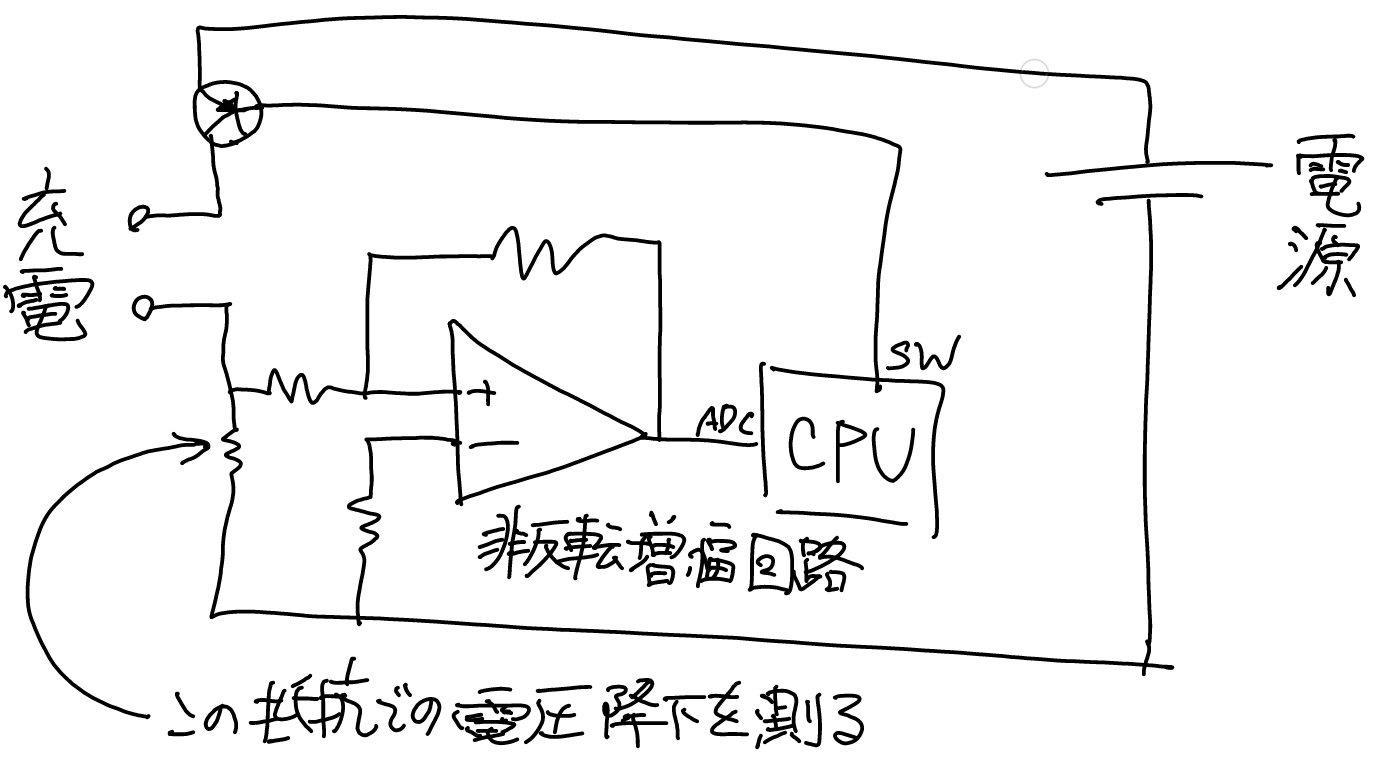 充電
電源
SW
+
ADC
CPU
−
非反転増幅回路
この抵抗での電圧降下を測る